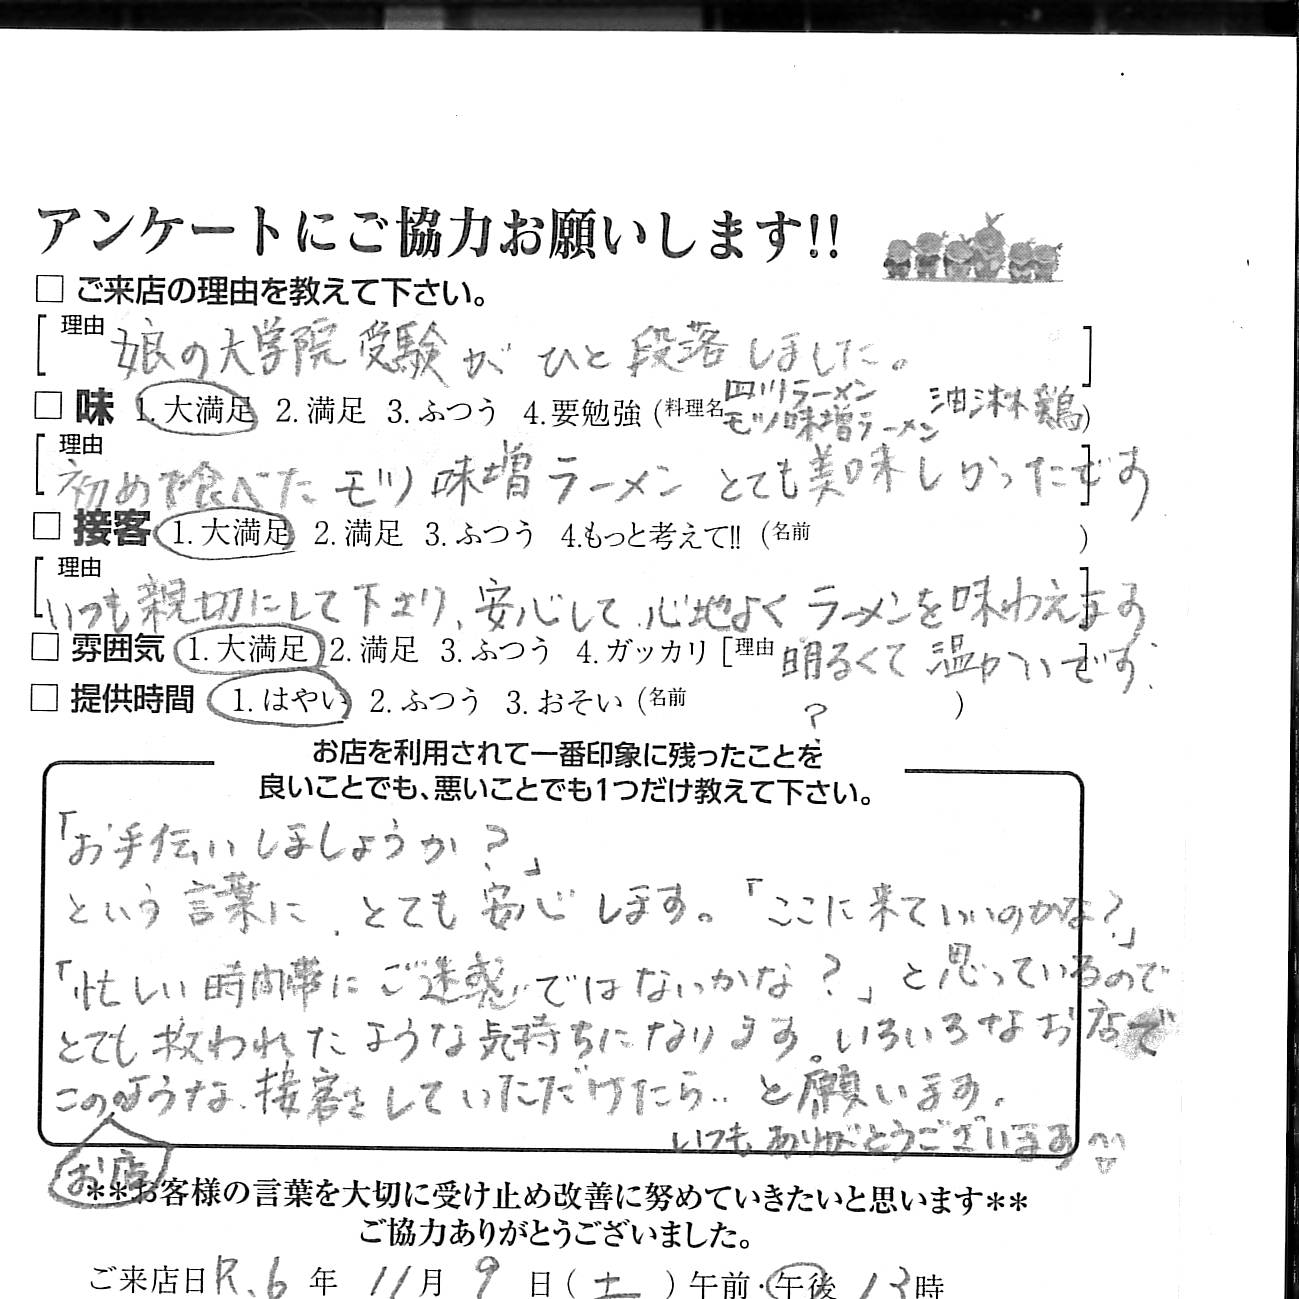 アンケートにご協力お願いします!!
□ ご来店の理由を教えて下さい。
[理由 娘の大学院受験が ひと段落しました。]
□ 味 1.大満足 2.満足 3.ふつう 4.要勉強 (料理名 四川ラーメン モツ味噌ラーメン 油淋鶏)
[理由 初めて食べた モツ味噌ラーメン とても美味しかったです]
□ 接客 1.大満足 2.満足 3.ふつう 4.もっと考えて!! (名前 )
[理由 いつも親切にして下さり、安心して、心地よく ラーメンを味わえます]
□ 雰囲気 1.大満足 2.満足 3.ふつう 4.ガッカリ [理由 明るくて 温かいです]
□ 提供時間 1.はやい 2.ふつう 3.おそい (名前 )
?
お店を利用されて一番印象に残ったことを
良いことでも、悪いことでも1つだけ教えて下さい。
「お手伝いしましょうか?」
という言葉に、とても安心します。「ここに来ていいのかな?」
「忙しい時間帯に ご迷惑ではないかな?」と思っているので
とても救われたような気持ちになります。いろいろなお店で
このような、接客をしていただけたら‥と願います。
いつもありがとうございます
お店
**お客様の言葉を大切に受け止め改善に努めていきたいと思います**
ご協力ありがとうございました。
ご来店日 R.6 年 11月 9 日(土)午前・午後 13時